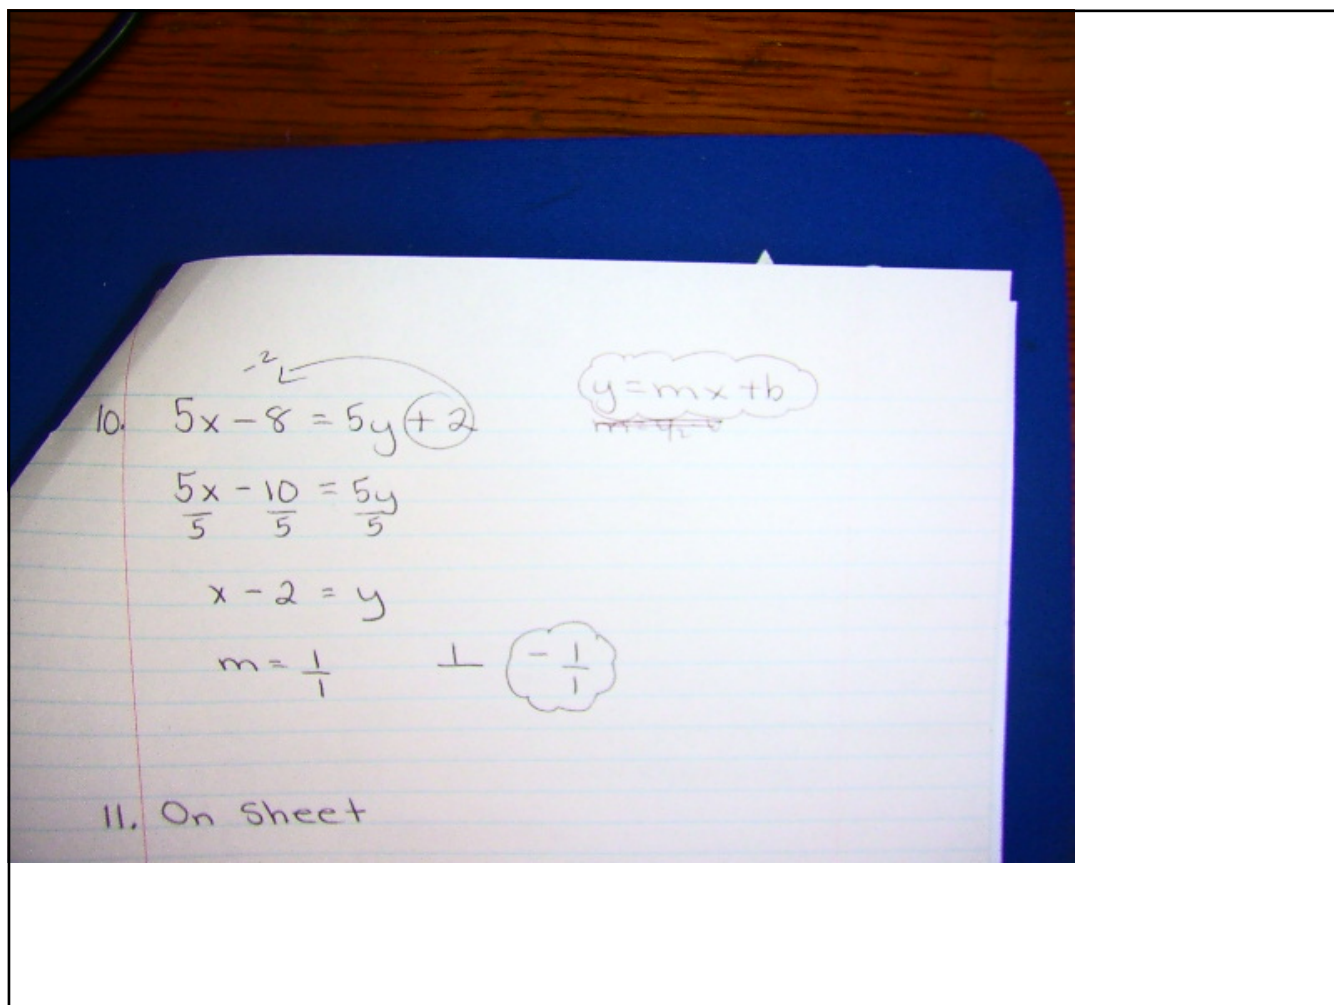 -2
10. 5x - 8 = 5y + 2
y = mx + b
5x/5 - 10/5 = 5y/5
x - 2 = y
m = 1/1 ⊥ - 1/1
11. On Sheet